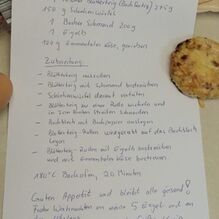 Blätterteig (Backfertig) 275g
150 g Schinkenwürfel
1 Becher Schmand 200g
1 Eigelb
100 g Emmentaler Käse, gerieben
Zubereitung
- Blätterteig ausrollen
- Blätterteig mit Schmand bestreichen
- Schinkenwürfel darauf verteilen
- Blätterteig zu einer Rolle wickeln und in 1cm breite Streifen schneiden
- Backblech mit Backpapier auslegen
- Blätterteig-Rollen waagerecht auf das Backblech legen
- Blätterteig-Rollen mit Eigelb bestreichen und mit Emmentaler Käse bestreuen
180°C Backofen, 20 Minuten
Guten Appetit und bleibt alle gesund!
Frohe Weihnachten an meine 5 Engel und an